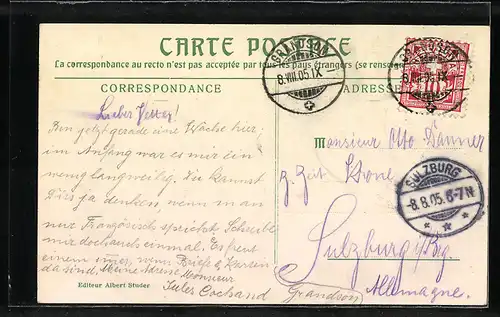 CARTE POSTALE
La correspondance au recto n'est pas acceptée par tous les pays étrangers (se renseigner
CORRESPONDANCE
ADRESSE
GRANDSON
8.VIII.05.IX
GRANDSON
8.VIII.05.IX
Lieber Vetter!
Bin jetzt gerade eine Woche hier;
im Anfang war es mir ein
wenig langweilig. Du kannst
Dir ja denken wenn man
nur Französisch spricht. Schreibe
mir doch auch einmal. Es freut
einem immer, wenn Briefe & Karten
da sind. Meine Adresse Monsieur
Jules Cochand
Grandson
Monsieur Otto Danner
z. Zeit Krone
Sulzburg i/Brg
Allemagne.
SULZBURG
-8.8.05.6-7N
Editeur Albert Studer